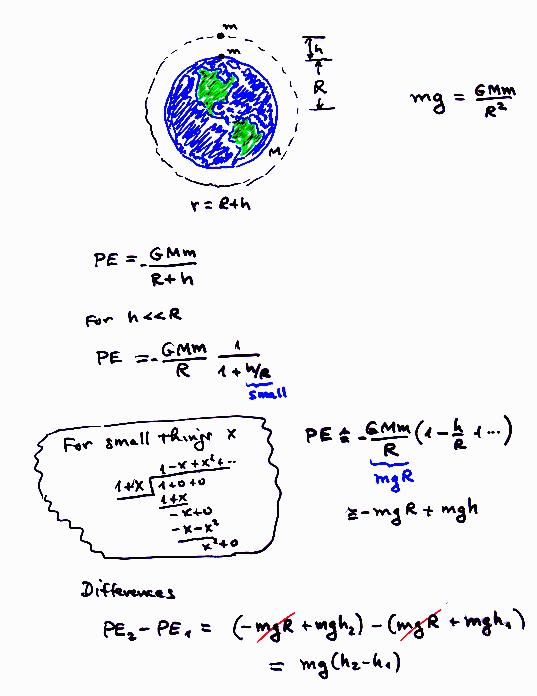 m
m
h
R
M
r = R+h
mg = GMm/R²
PE = - GMm/(R+h)
For h << R
PE = - GMm/R 1/(1 + h/R)
small
For small things x
1-x+x²+...
1+x 1+0+0
1+x
-x+0
-x-x²
x²+0
PE ≅ - GMm/R (1 - h/R + ...)
mgR
≅ -mgR + mgh
Differences
PE₂ - PE₁ = (-mgR + mgh₂) - (mgR + mgh₁)
= mg(h₂-h₁)